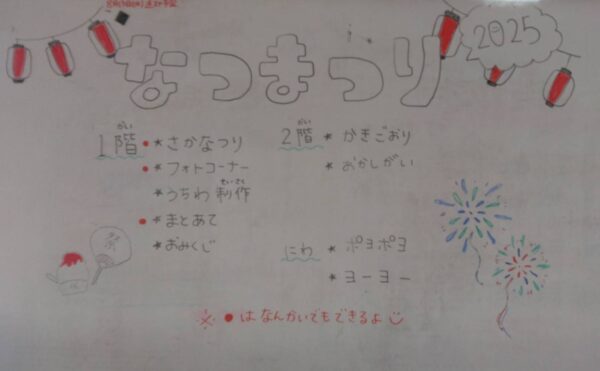 なつまつり
2025
1階
かい
●★さかなつり
●★フォトコーナー
★うちわ制作
せいさく
●★まとあて
★おみくじ
2階
かい
★かきごおり
★おかしがい
にわ
★ポヨポヨ
★ヨーヨー
※●はなんかいでもできるよ